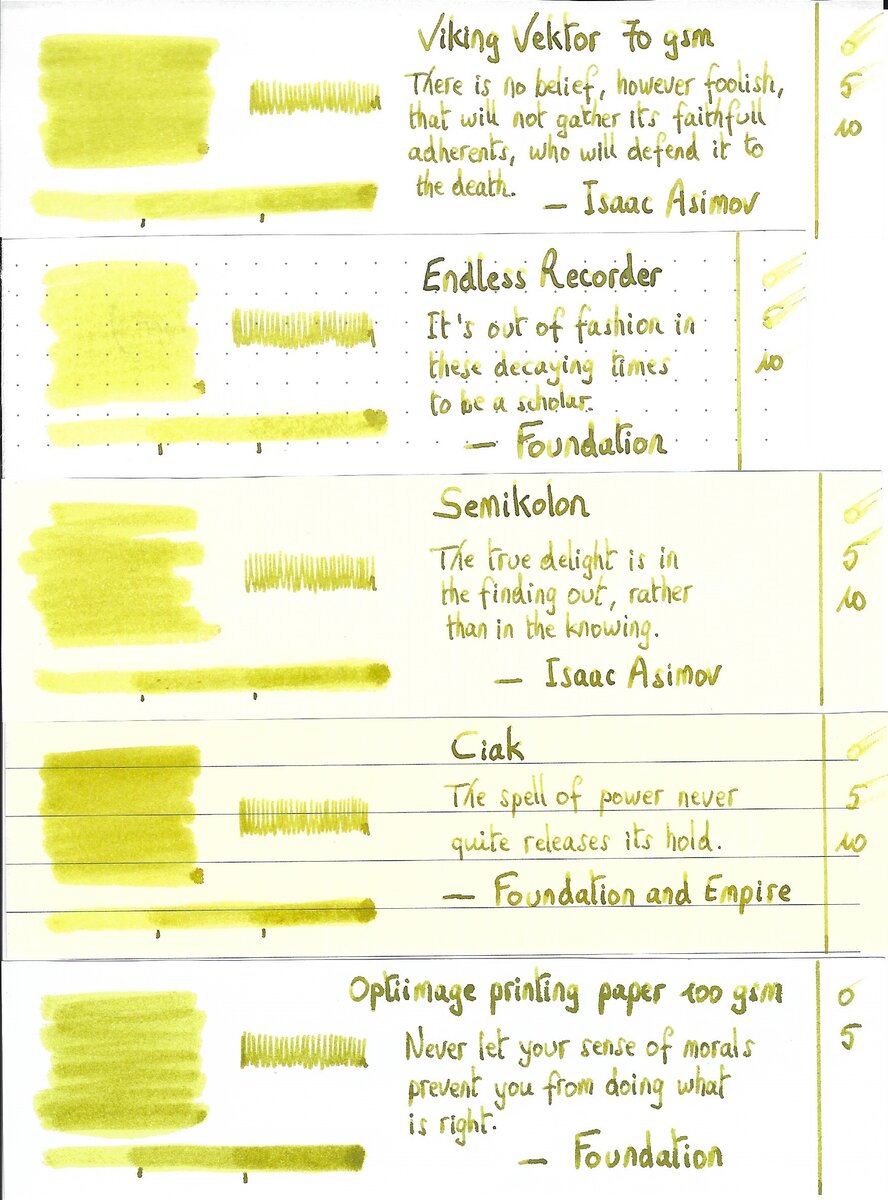 Viking Vektor 70 gsm
There is no belief, however foolish,
that will not gather its faithfull
adherents, who will defend it to
the death.
— Isaac Asimov
0
5
10
Endless Recorder
It's out of fashion in
these decaying times
to be a scholar.
— Foundation
0
5
10
Semikolon
The true delight is in
the finding out, rather
than in the knowing.
— Isaac Asimov
0
5
10
Ciak
The spell of power never
quite releases its hold.
— Foundation and Empire
0
5
10
Optiimage printing paper 100 gsm
Never let your sense of morals
prevent you from doing what
is right.
— Foundation
0
5